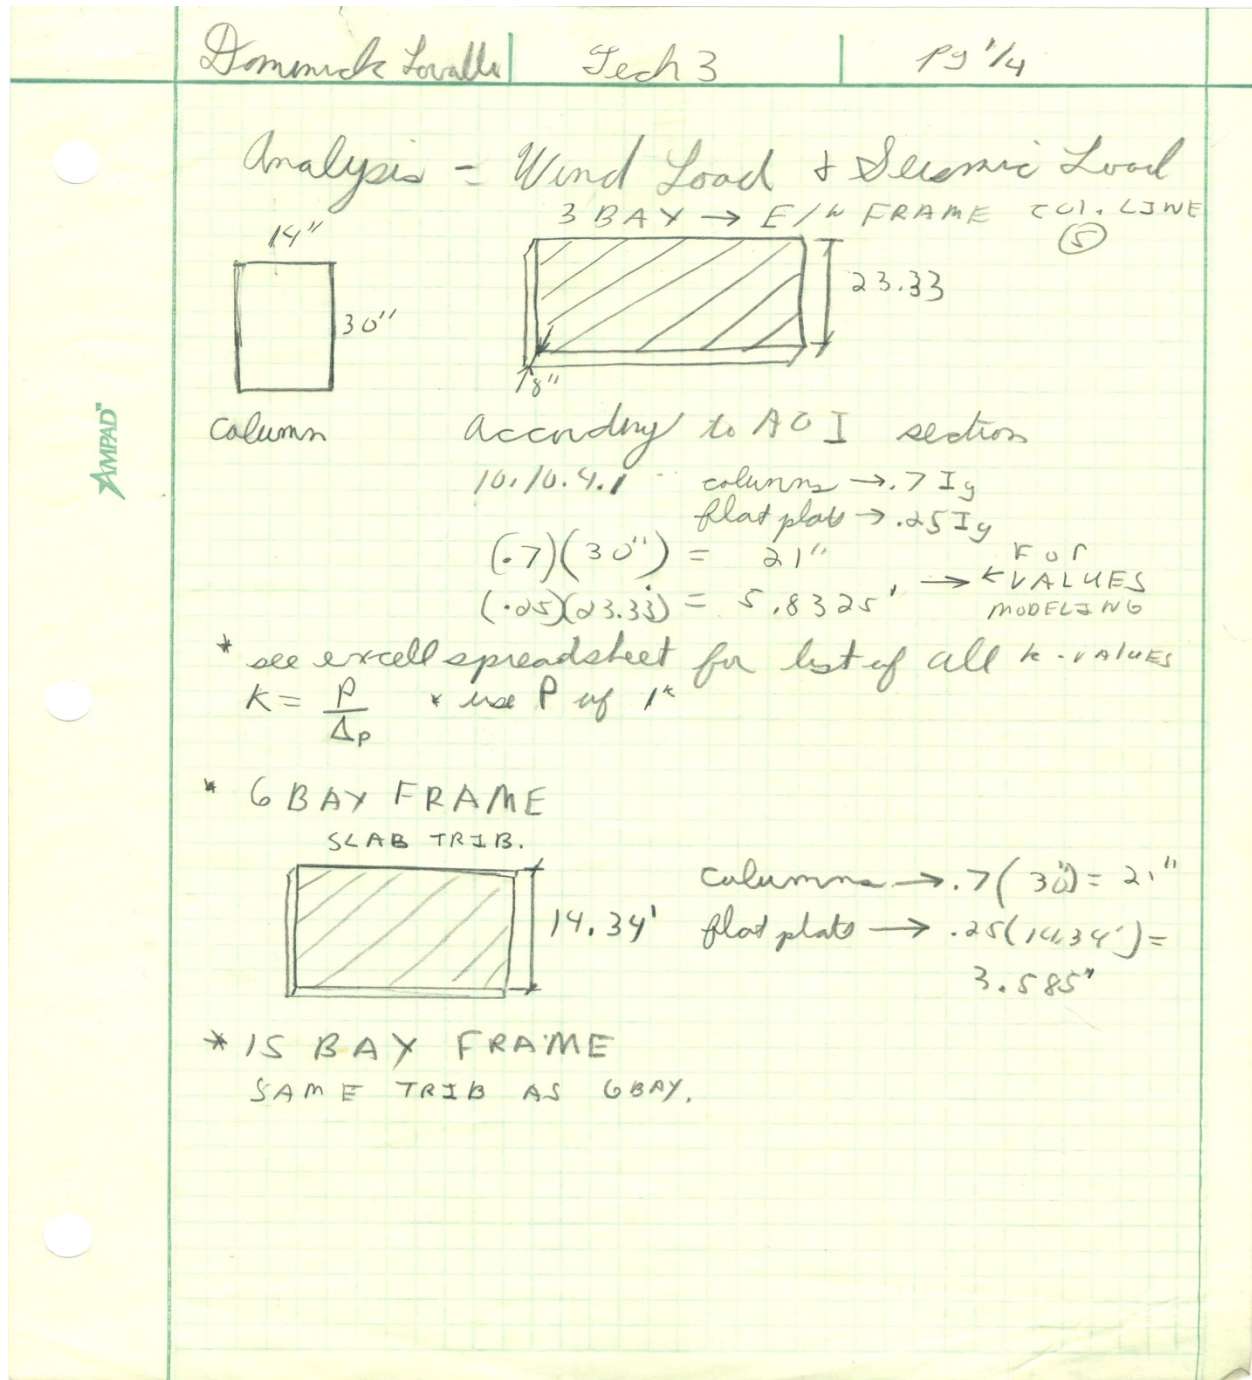 Dominick Lovallo Tech 3 Pg 1/4
Analysis - Wind Load & Seismic Load
3 BAY → E/W FRAME COL. LINE
5
14"
30"
23.33
8"
column
According to ACI section
10.10.4.1 columns → .7 Ig
flat plats → .25 Ig
(.7)(30") = 21"
(.25)(23.33) = 5.8325' → FOR
K VALUES
MODELING
* see excell spreadsheet for list of all k-values
K = P/Δp * use P of 1ᵏ
* 6 BAY FRAME
SLAB TRIB.
14.34'
columns → .7(30") = 21"
flat plats → .25(14.34') =
3.585"
* 15 BAY FRAME
SAME TRIB AS 6BAY.
AMPAD™